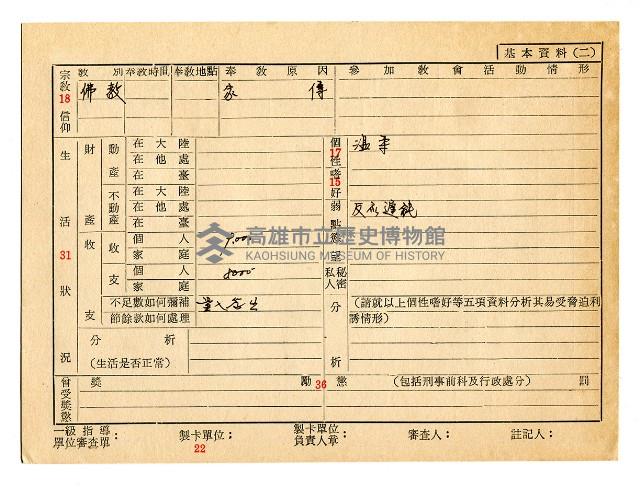 基本資料(二)
宗教信仰 18
教別 奉教時間 奉教地點 奉教原因 參加教會活動情形
佛教 家傳
生活狀況 31
財產
動產
在大陸
在他處
在臺
不動產
在大陸
在他處
在臺
收支
收
個人 9,000
家庭
支
個人 8000
家庭
不足數如何彌補
節餘款如何處理
分析
(生活是否正常)
個性 17 溫
嗜好 15
弱點 反應遲鈍
慾望
私人秘密
分析
(請就以上個性嗜好等五項資料分析其易受脅迫利誘情形)
高雄市立歷史博物館
KAOHSIUNG MUSEUM OF HISTORY
曾受獎懲
獎勵 36 懲(包括刑事前科及行政處分)罰
一級指導單位審查單:
製卡單位:
22
製卡單位負責人章:
審查人:
註記人: